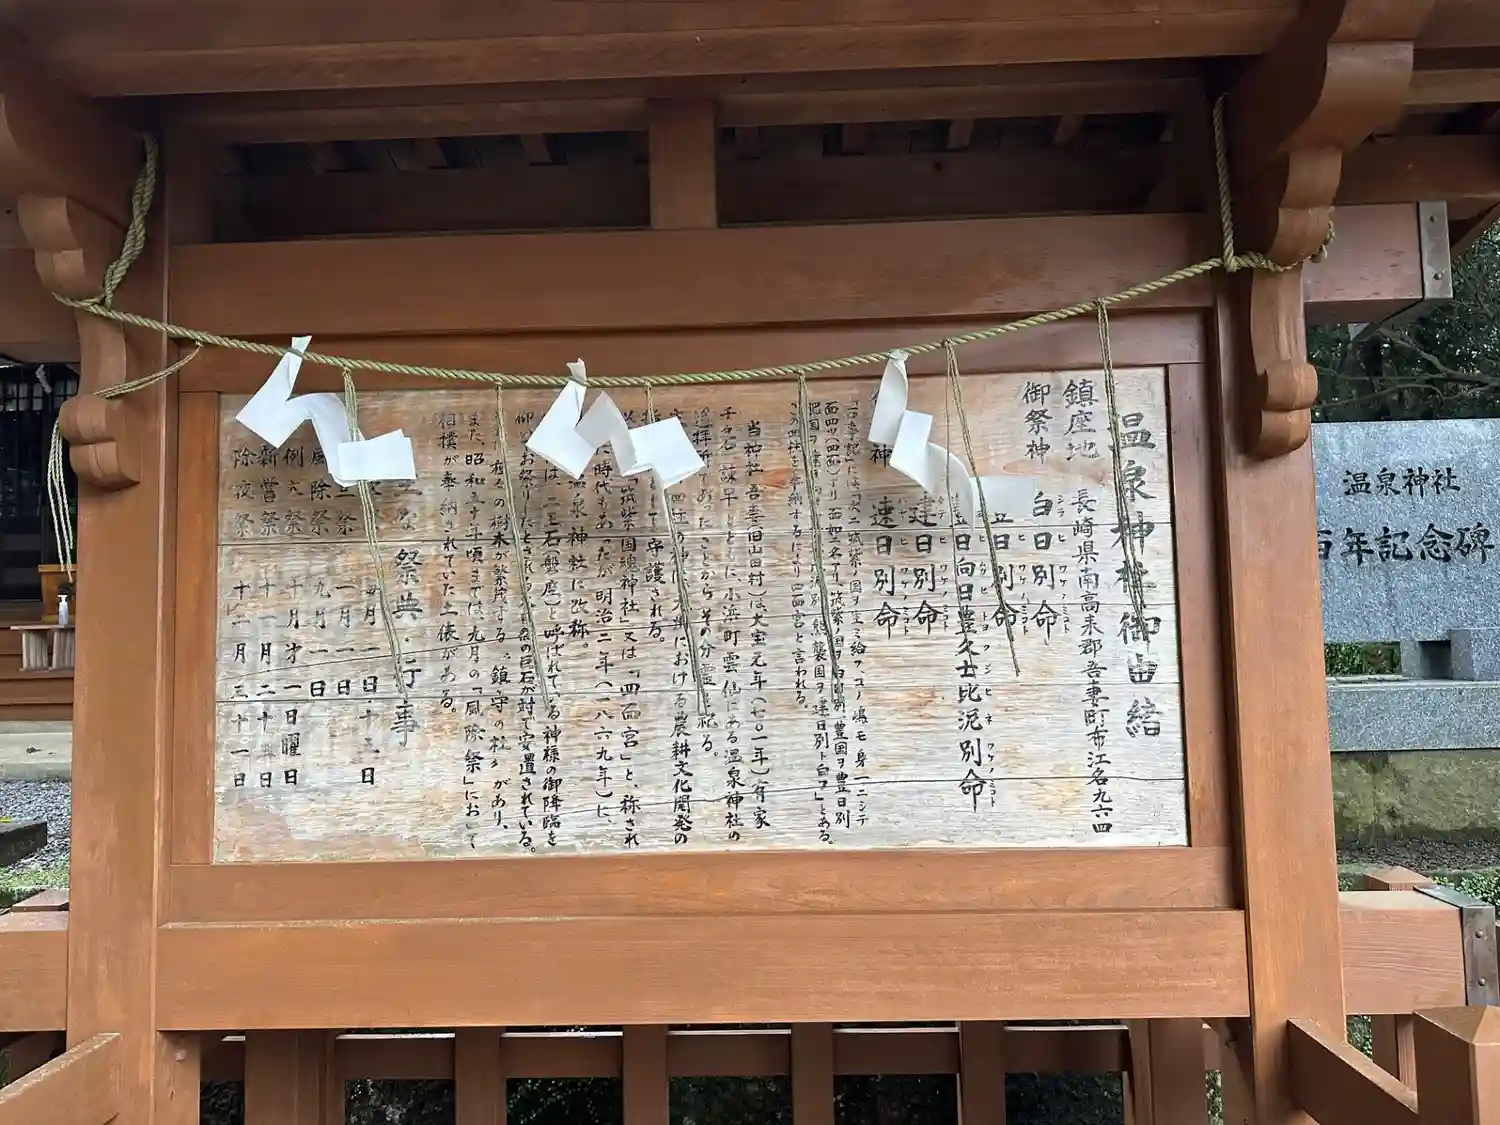 温泉神社御由緒
鎮座地 長崎県南高来郡吾妻町布江名九六四
御祭神 白日別命
シラ ヒ ワケノミコト
日別命
ヒ ワケノミコト
日向日豊久士比泥別命
トヨ クジヒ ネ ワケノミコト
建日別命
ヒ ワケノミコト
神 速日別命
ハヤ ヒ ワケノミコト
「古事記」には「次ニ筑紫ノ国ヲ生ミ給フコノ嶋モ身一ニシテ
面四ツ(四面)アリ面毎ニ名アリ筑紫ノ国ヲ白日別、豊国ヲ豊日別
肥国ヲ 日別、熊襲国ヲ建日別ト白フ」とある。
この四柱を奉祀するにより四面宮と言われる。
当神社(吾妻旧山田村)は大宝元年(七〇一年)有家
千々石、諫早とともに、小浜町雲仙にある温泉神社の
遥拝所であったことから、その分霊を祀る。
四柱の神は、九州における農耕文化開発の
として守護される。
時代もあったが、「筑紫国魂神社」又は「四面宮」と、称され
明治二年(一八六九年)に、
温泉神社に改称。
は、二王石(磐座)と呼ばれている神様の御降臨を
仰いでお祭りしたとされる の巨石が対で安置されている。
の樹木が繁茂する「鎮守の杜」があり、
また、昭和三十年頃までは、九月の「風除祭」において
相撲が奉納されていた土俵がある。
祭典・行事
毎月一日・十五日
祭 一月一日
風除祭 九月一日
例大祭 十月第一日曜日
新嘗祭 十一月二十五日
除夜祭 十二月三十一日
温泉神社
百年記念碑